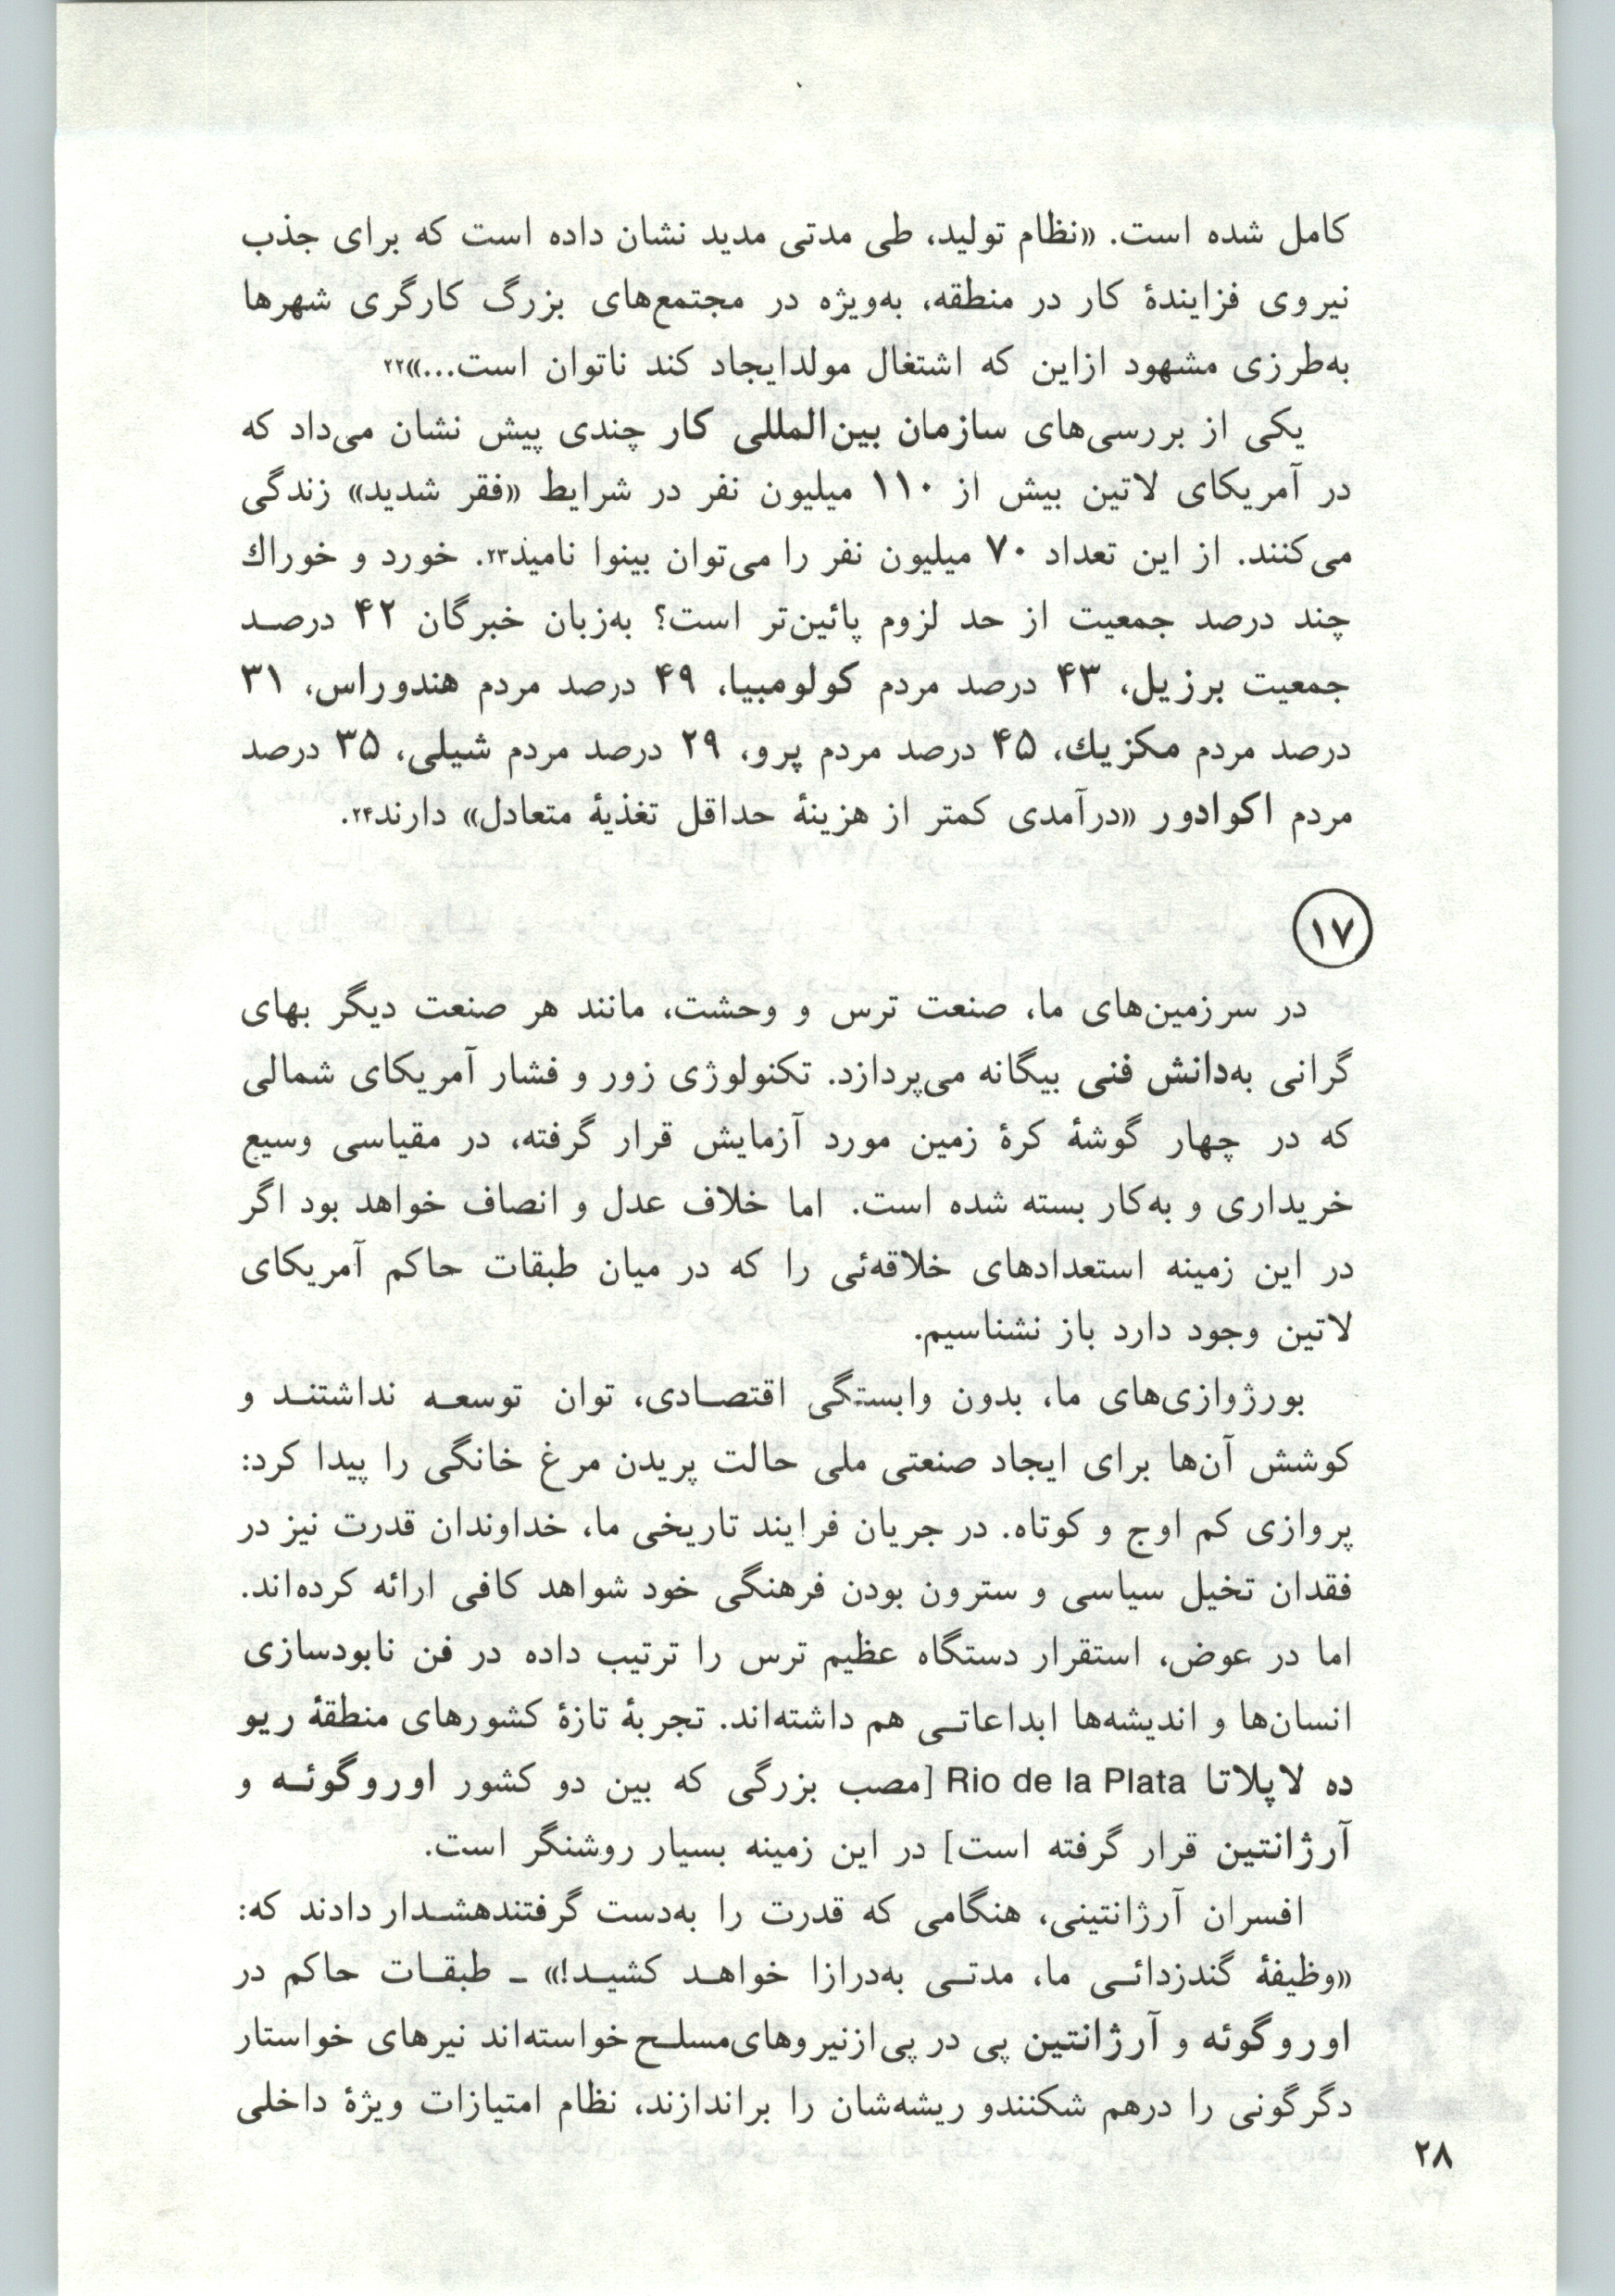 کامل شده است. «نظام تولید، طی مدتی مدید نشان داده است که برای جذب
نیروی فزایندهٔ کار در منطقه، به‌ویژه در مجتمع‌های بزرگ کارگری شهرها
به‌طرزی مشهود ازاین که اشتغال مولدایجاد کند ناتوان است...»۲۲
یکی از بررسی‌های سازمان بین‌المللی کار چندی پیش نشان می‌داد که
در آمریکای لاتین بیش از ۱۱۰ میلیون نفر در شرایط «فقر شدید» زندگی
می‌کنند. از این تعداد ۷۰ میلیون نفر را می‌توان بینوا نامید۲۳. خورد و خوراك
چند درصد جمعیت از حد لزوم پائین‌تر است؟ به‌زبان خبرگان ۴۲ درصـد
جمعیت برزیل، ۴۳ درصد مردم کولومبیا، ۴۹ درصد مردم هندوراس، ۳۱
درصد مردم مکزیك، ۴۵ درصد مردم پرو، ۲۹ درصد مردم شیلی، ۳۵ درصد
مردم اکوادور «درآمدی کمتر از هزینهٔ حداقل تغذیهٔ متعادل» دارند۲۴.
۱۷
در سرزمین‌های ما، صنعت ترس و وحشت، مانند هر صنعت دیگر بهای
گرانی به‌دانش فنی بیگانه می‌پردازد. تکنولوژی زور و فشار آمریکای شمالی
که در چهار گوشهٔ کرهٔ زمین مورد آزمایش قرار گرفته، در مقیاسی وسیع
خریداری و به‌کار بسته شده است. اما خلاف عدل و انصاف خواهد بود اگر
در این زمینه استعدادهای خلاقه‌ئی را که در میان طبقات حاکم آمریکای
لاتین وجود دارد باز نشناسیم.
بورژوازی‌های ما، بدون وابستگی اقتصـادی، توان توسعـه نداشتنـد و
کوشش آن‌ها برای ایجاد صنعتی ملی حالت پریدن مرغ خانگی را پیدا کرد:
پروازی کم اوج و کوتاه. در جریان فرایند تاریخی ما، خداوندان قدرت نیز در
فقدان تخیل سیاسی و سترون بودن فرهنگی خود شواهد کافی ارائه کرده‌اند.
اما در عوض، استقرار دستگاه عظیم ترس را ترتیب داده در فن نابودسازی
انسان‌ها و اندیشه‌ها ابداعاتـی هم داشته‌اند. تجربهٔ تازهٔ کشورهای منطقهٔ ریو
ده لاپلاتا Rio de la Plata [مصب بزرگی که بین دو کشور اوروگوئـه و
آرژانتین قرار گرفته است] در این زمینه بسیار روشنگر است.
افسران آرژانتینی، هنگامی که قدرت را به‌دست گرفتندهشـدار دادند که:
«وظیفهٔ گندزدائـی ما، مدتـی به‌درازا خواهـد کشیـد!» ـ طبقـات حاکم در
اوروگوئه و آرژانتین پی در پی‌ازنیروهای‌مسلـح خواسته‌اند نیرهای خواستار
دگرگونی را درهم شکنندو ریشه‌شان را براندازند، نظام امتیازات ویژهٔ داخلی
۲۸